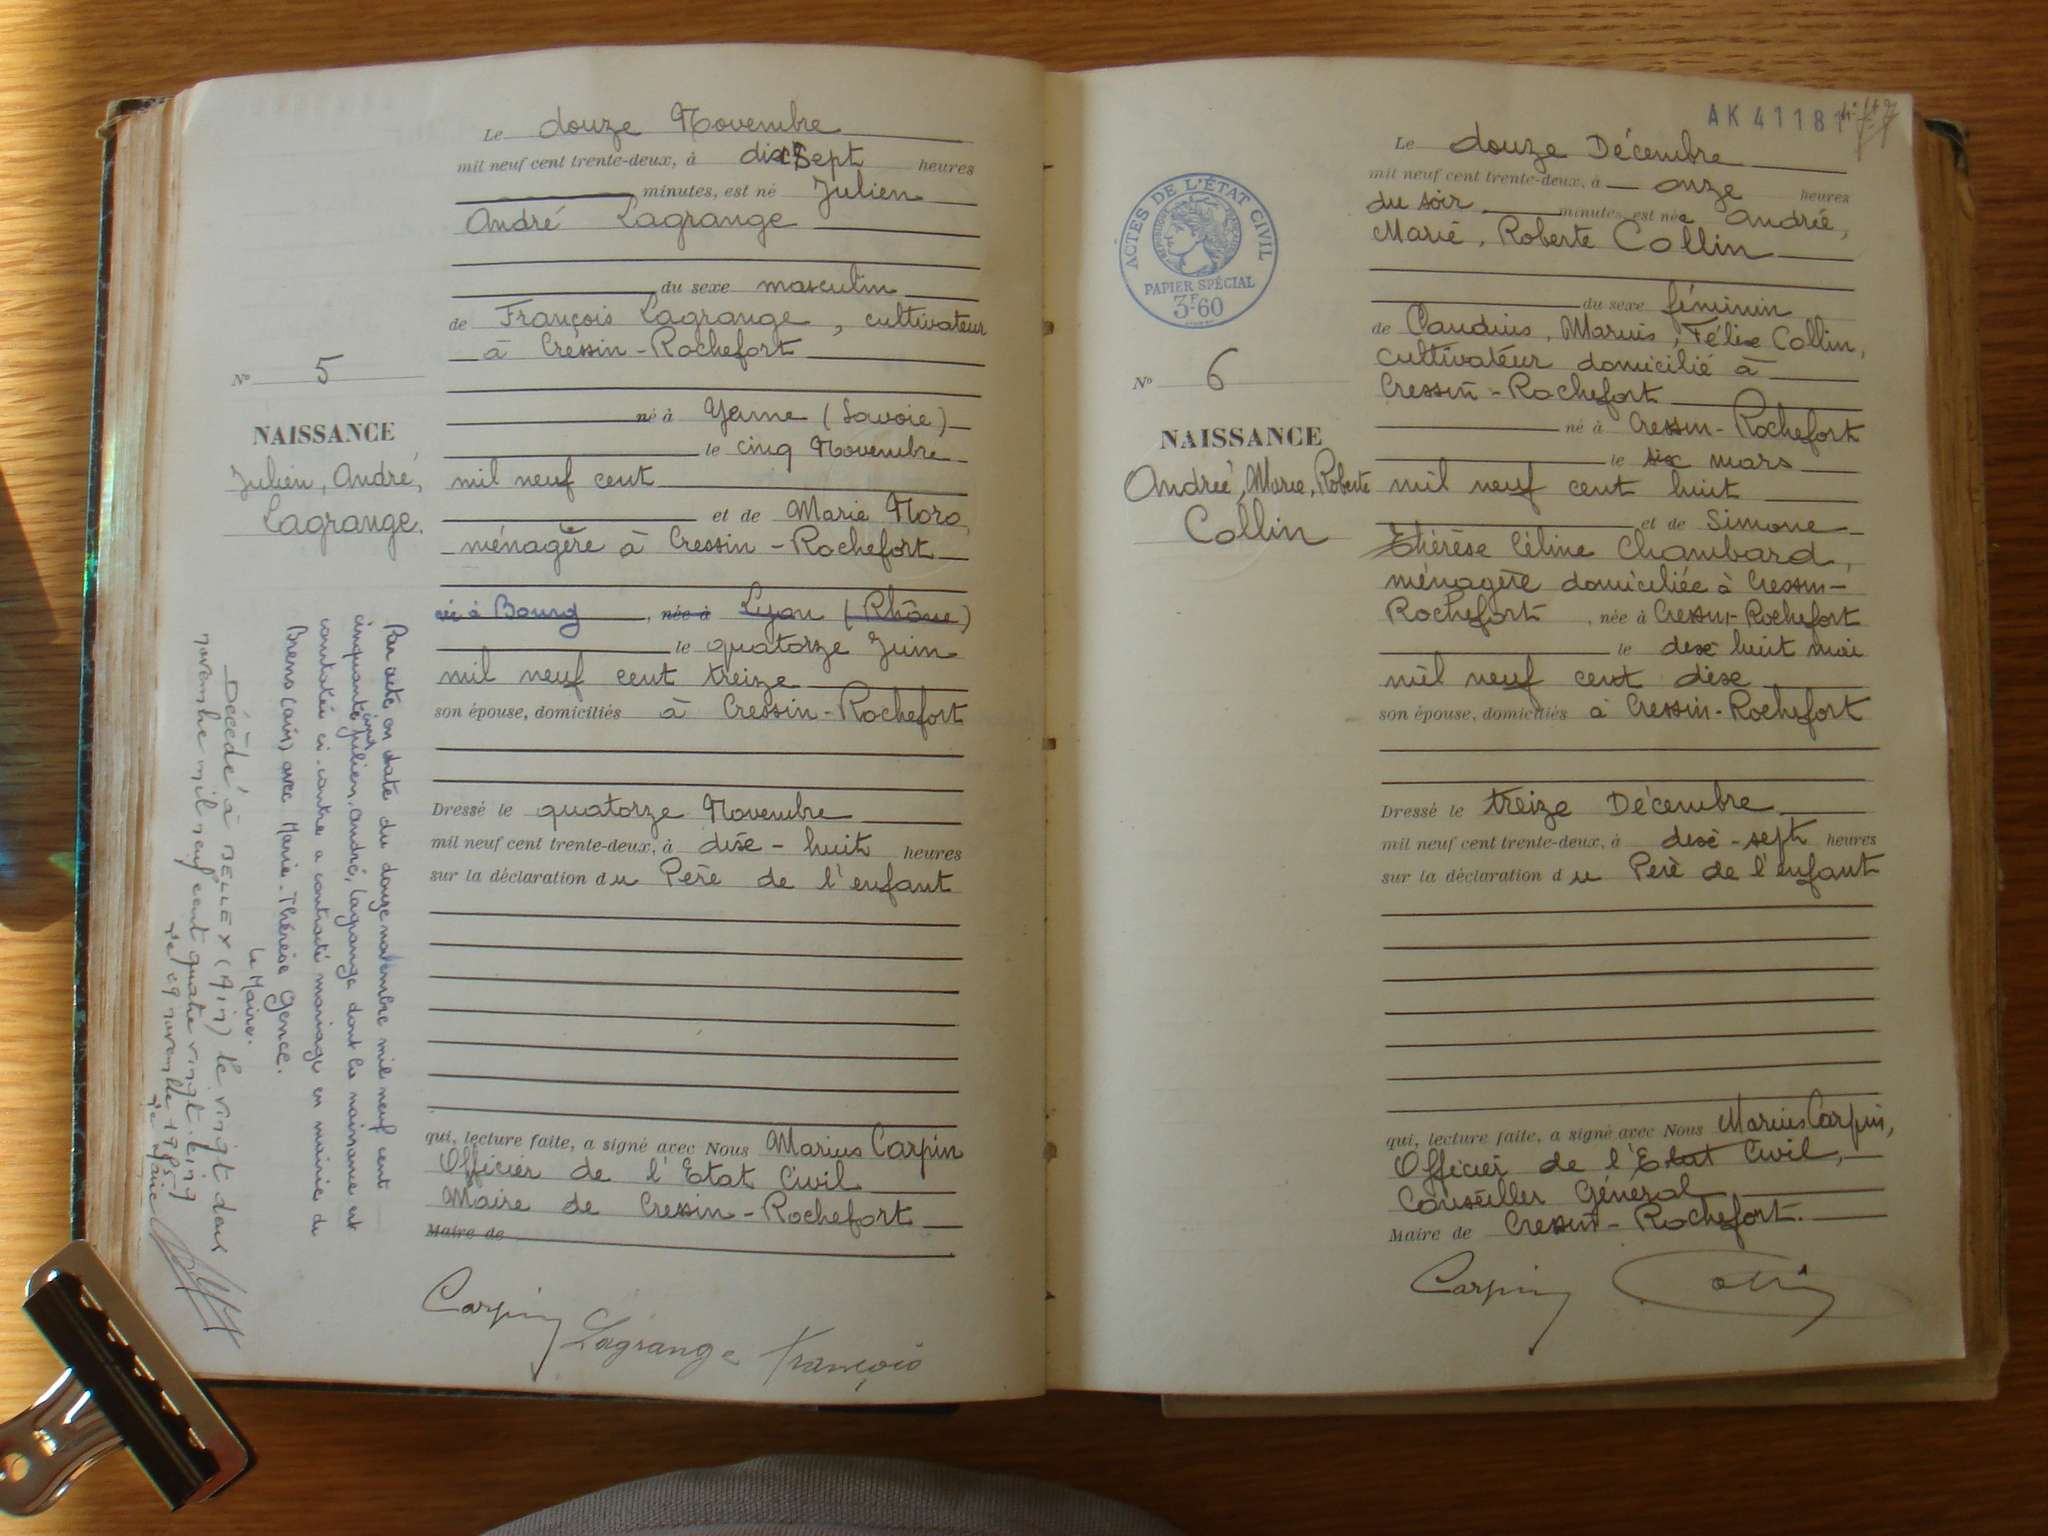 Le douze Novembre
mil neuf cent trente-deux, à dix sept heures
minutes, est né Julien
André Lagrange
du sexe masculin
de François Lagrange, cultivateur
à Cressin-Rochefort
né à Yenne (Savoie)
le cinq Novembre
mil neuf cent
et de Marie Moro,
ménagère à Cressin-Rochefort
née à Bourg, née à Lyon (Rhône)
le quatorze Juin
mil neuf cent treize
son épouse, domiciliés à Cressin-Rochefort
Dressé le quatorze Novembre
mil neuf cent trente-deux, à dix-huit heures
sur la déclaration du Père de l'enfant
qui, lecture faite, a signé avec Nous Marius Carpin
Officier de l'Etat Civil
Maire de Cressin-Rochefort
Maire de
Carpin
Lagrange François
No 5
NAISSANCE
Julien, André,
Lagrange.
Par acte en date du douze novembre mil neuf cent
cinquante cinq Julien, André, Lagrange dont la naissance est
constatée ci-contre a contracté mariage en mairie de
Brens (Ain) avec Marie-Thérèse Gence.
Le Maire.
Décédé à BELLEY (Ain) le vingt deux
novembre mil neuf cent quatre vingt cinq
Le novembre 1985
Le Maire
AK 41181
ACTES DE L'ÉTAT CIVIL
PAPIER SPÉCIAL
3F60
No 6
NAISSANCE
Andrée, Marie, Roberte
Collin
Le douze Décembre
mil neuf cent trente-deux, à onze heures
du soir minutes, est née Andrée,
Marie, Roberte Collin
du sexe féminin
de Claudius, Marius, Félix Collin,
cultivateur domicilié à
Cressin-Rochefort
né à Cressin-Rochefort
le six mars
mil neuf cent huit
et de Simone
Thérèse Céline Chambard,
ménagère domiciliée à Cressin-
Rochefort, née à Cressin-Rochefort
le dix huit mai
mil neuf cent dix
son épouse, domiciliés à Cressin-Rochefort
Dressé le treize Décembre
mil neuf cent trente-deux, à dix-sept heures
sur la déclaration du Père de l'enfant
qui, lecture faite, a signé avec Nous Marius Carpin,
Officier de l'Etat Civil,
Conseiller Général
Maire de Cressin-Rochefort.
Carpin Collin